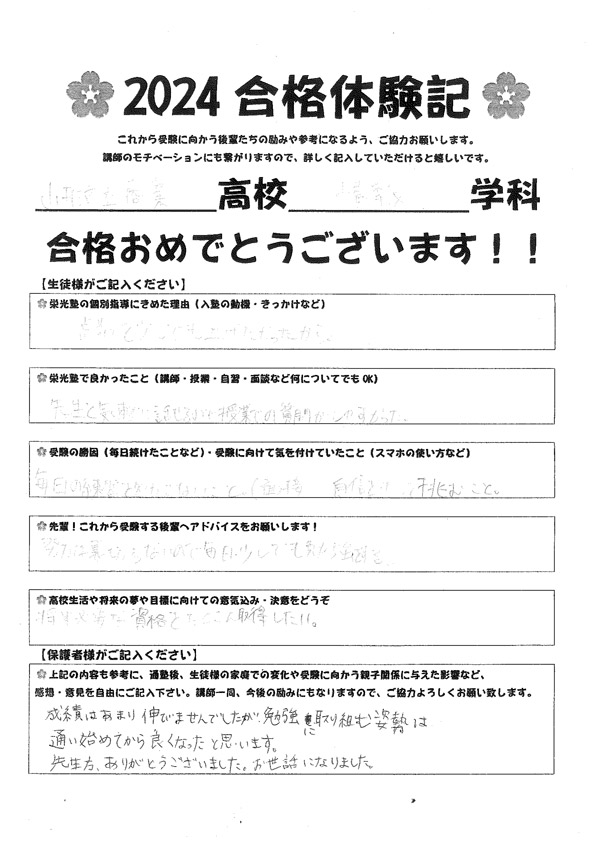 2024 合格体験記
これから受験に向かう後輩たちの励みや参考になるよう、ご協力お願いします。
講師のモチベーションにも繋がりますので、詳しく記入していただけると嬉しいです。
高校 学科
合格おめでとうございます！！
【生徒様がご記入ください】
栄光塾の個別指導にきめた理由（入塾の動機・きっかけなど）
栄光塾で良かったこと（講師・授業・自習・面談など何についてでもOK）
先生と気軽に話せるので授業での質問がしやすかった。
受験の勝因（毎日続けたことなど）・受験に向けて気を付けていたこと（スマホの使い方など）
毎日の練習を欠かさないこと。
こと。
先輩！これから受験する後輩へアドバイスをお願いします！
努力は裏切らないので毎日少しでも
高校生活や将来の夢や目標に向けての意気込み・決意をどうぞ
資格をたくさん取得したい。
【保護者様がご記入ください】
上記の内容も参考に、通塾後、生徒様の家庭での変化や受験に向かう親子関係に与えた影響など、
感想・意見を自由にご記入下さい。講師一同、今後の励みにもなりますので、ご協力よろしくお願い致します。
成績はあまり伸びませんでしたが、勉強に取り組む姿勢は
通い始めてから良くなったと思います。
先生方、ありがとうございました。お世話になりました。